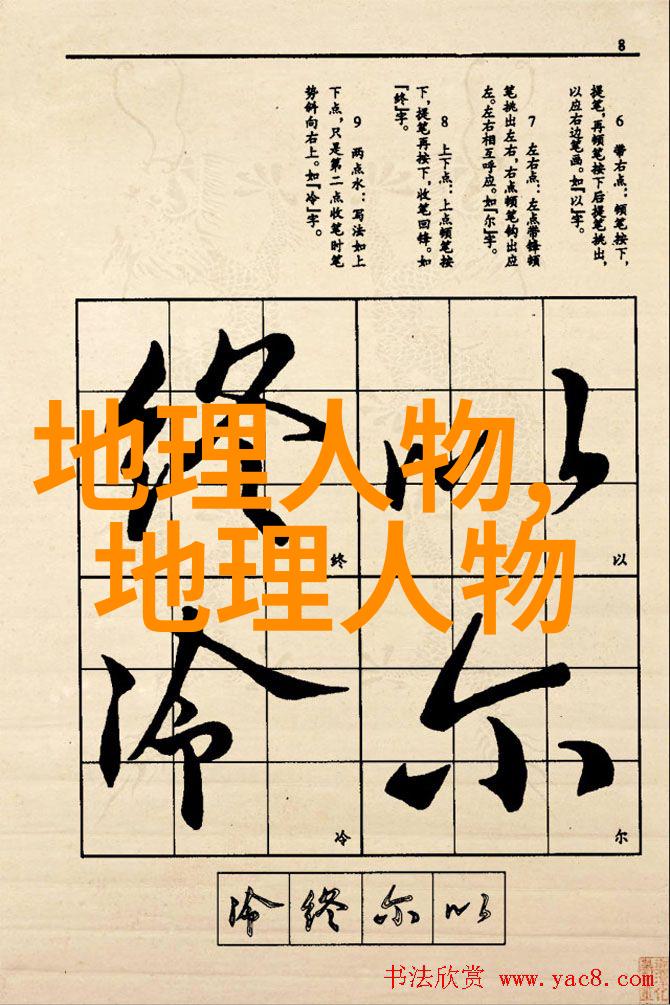 8
6 带右点：顿笔按下，
提笔，再顿笔按下后提笔挑出，
以应右边笔画。如『以』字。
7 左右点：左点带锋顿
笔挑出左右，右点顿笔钩出应
左。左右相互呼应。如『尔』字。
8 上下点：上点顿笔按
下，提笔再按下，收笔回锋。如
『终』字。
9 两点水：写法如上
下点，只是第二点收笔时笔
势斜向右上。如『冷』字。
地理人物，
地理人物
以
尔
终
冷
以
尔
终
冷
冷终尔以
书法欣赏 www.yac8.com